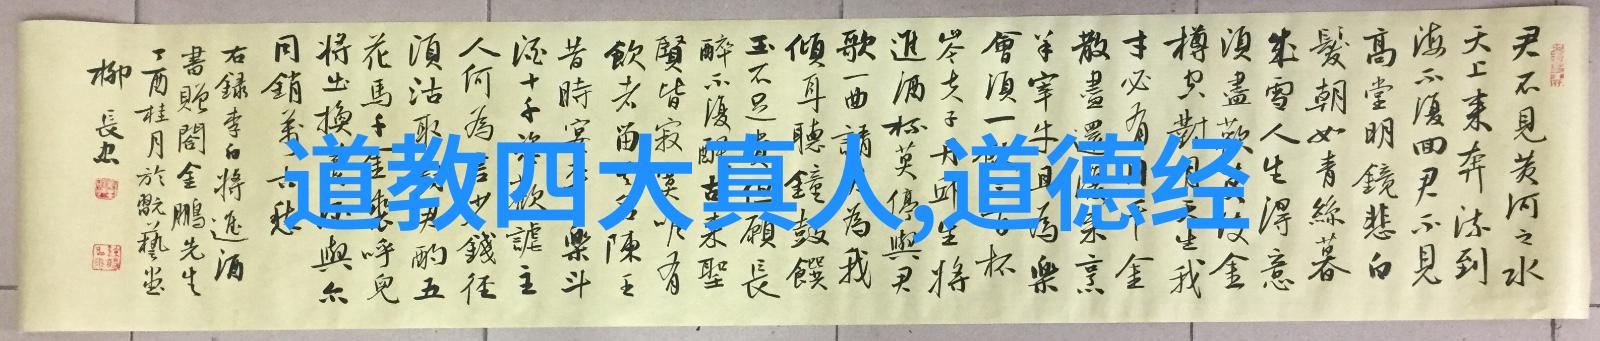 君不见黄河之水
天上来奔流到
海不復回君不見
高堂明鏡悲白
髮朝如青絲暮
成雪人生得意
須盡歡莫使金
樽空對月天生我
才必有用千金
散盡還復來烹
羊宰牛且為樂
會須一飲三百杯
岑夫子丹邱生將
進酒杯莫停與君
歌一曲請君為我
傾耳聽鐘鼓饌
玉不足貴但願長
醉不復醒古來聖
賢皆寂寞唯有
飲者留其名陳王
昔時宴平樂斗
酒十千恣歡謔主
人何為言少錢徑
須沽取對君酌五
花馬千金裘呼兒
將出換美酒與尔
同銷萬古愁
右録李白將進酒
書贈閻金鵬先生
丁酉桂月於翫藝堂
柳長忠
道教四大真人,道德经